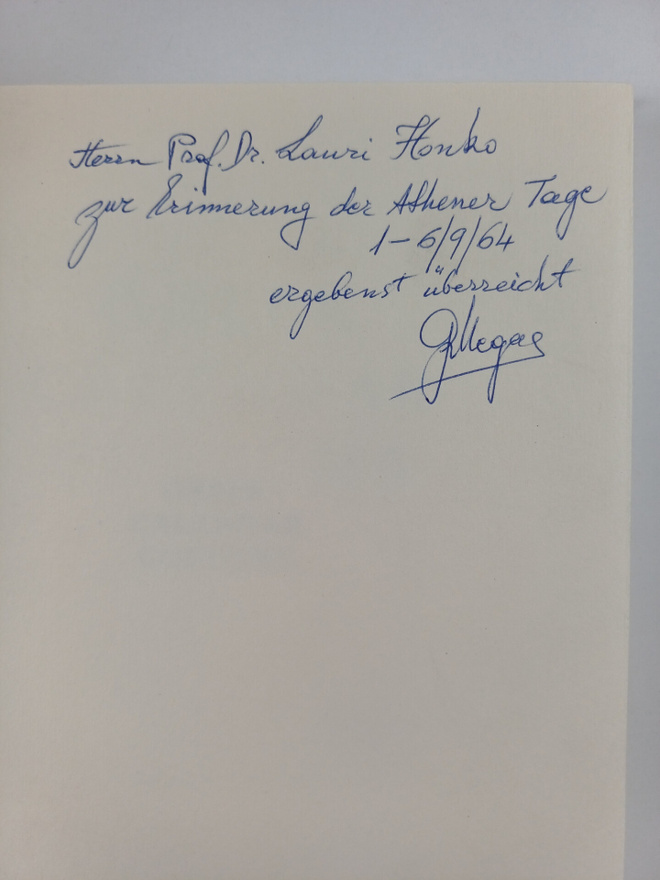 Herrn Prof. Dr. Lauri Honko
zur Erinnerung der Athener Tage
1-6/9/64
ergebenst überreicht
GMegas